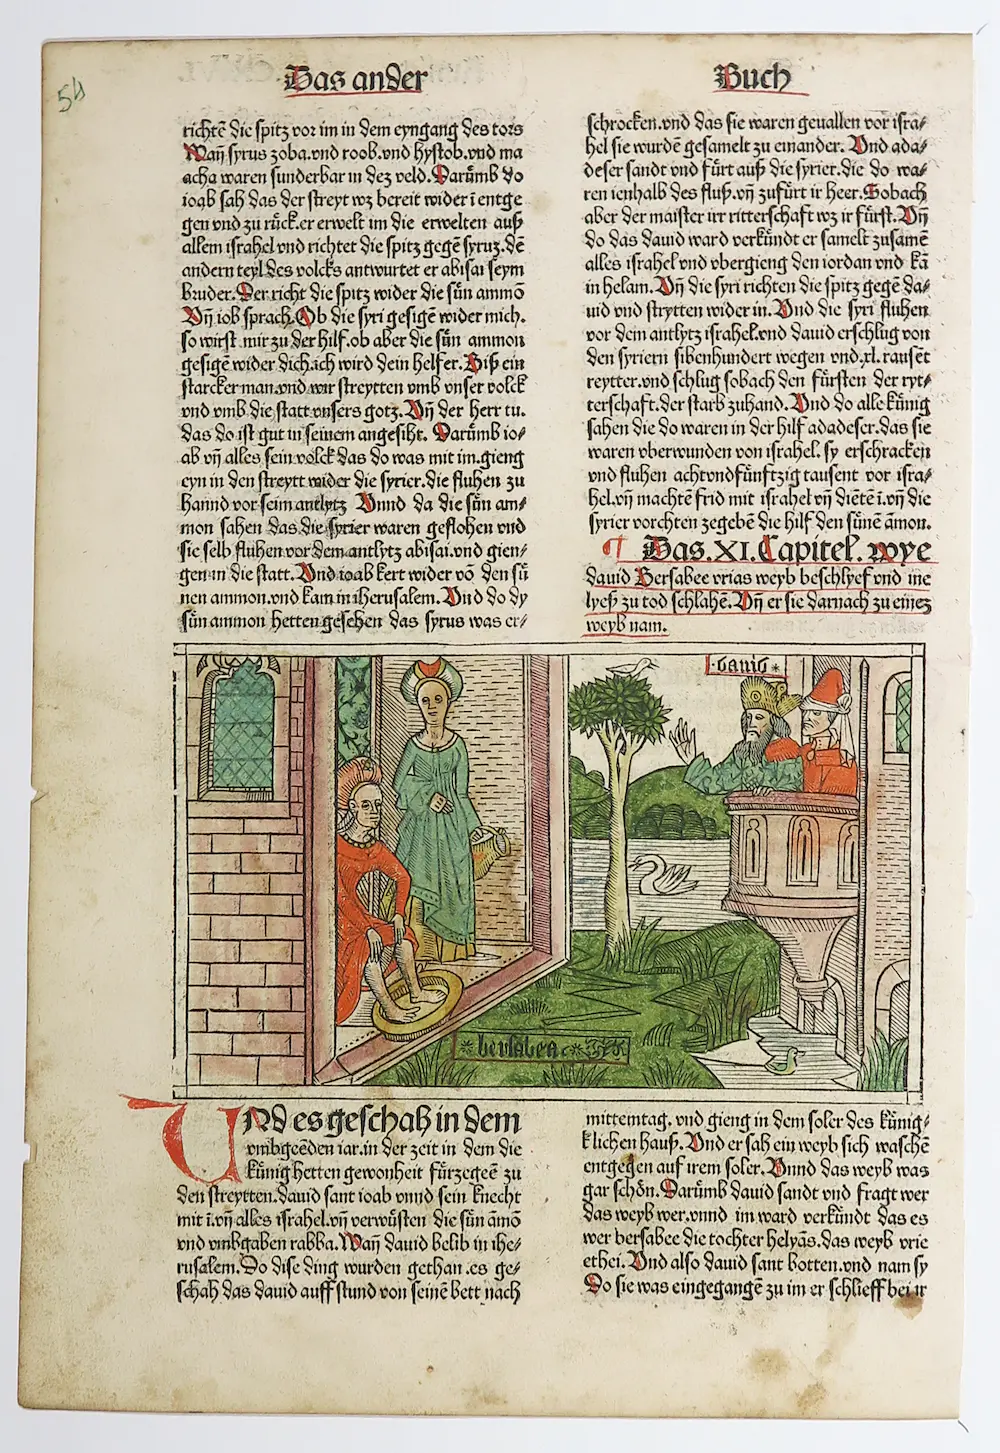 54
Das ander Buch
richtē die spitz vor im in dem eyngang des tors
Wañ syrus zoba.vnd roob.vnd hystob.vnd ma
acha waren sunderbar in dez veld.Darūmb do
ioab sah das der streyt wz bereit wider ī entge
gen vnd zu růck.er erwelt im die erwelten auß
allem israhel vnd richtet die spitz gegē syruz.dē
andern teyl des volcks antwurtet er abisai seym
bruder.Der richt die spitz wider die sün ammō
Vñ iob sprach.Ob die syri gesigē wider mich.
so wirst mir zu der hilf.ob aber die sün ammon
gesigē wider dich.ich wird dein helfer.Biß ein
starcker man.vnd wir streytten vmb vnser volck
vnd vmb die statt vnsers gotz.Vñ der herr tu.
das do ist gut in seinem angesiht. Darūmb io-
ab vñ alles sein volck das do was mit im.gieng
eyn in den streytt wider die syrier.die fluhen zu
hannd vor seim antlytz Vnnd da die sün am-
mon sahen das die syrier waren geflohen vnd
sie selb fluhen vor dem antlytz abisai.vnd gien-
gen in die statt.Vnd ioab kert wider vō den sü
nen ammon.vnd kam in iherusalem.Vnd do dy
sün ammon hetten gesehen das syrus was er-
schrocken.vnd das sie waren geuallen vor isra-
hel sie wurdē gesamelt zu einander. Vnd ada-
deser sandt vnd fürt auß die syrier.die do wa-
ren ienhalb des fluß.vñ zufürt ir heer.Sobach
aber der maister irr ritterschaft wz ir fürst.Vñ
do das dauid ward verkündt er samelt zusamē
alles israhel vnd vbergieng den iordan vnd kā
in helam.Vñ die syri richten die spitz gegē da-
uid vnd strytten wider in.Vnd die syri fluhen
vor dem antlytz israhel.vnd dauid erschlug von
den syriern sibenhundert wegen vnd.xl.tausēt
reytter.vnd schlug sobach den fürsten der ryt-
terschaft.der starb zuhand.Vnd do alle künig
sahen die do waren in der hilf adadeser.das sie
waren vberwunden von israhel. sy erschracken
vnd fluhen achtvndfünftzig tausent vor isra-
hel.vñ machtē frid mit israhel vñ diētē ī.vñ die
syrier vorchten zegebē die hilf den sünē āmon.
¶ Das.XI.Capitel.wye
dauid Bersabee vrias weyb beschlyef vnd ine
lyeß zu tod schlahē.Vñ er sie darnach zu einez
weyb nam.
dauid
bersabea
VNd es geschah in dem
vmbgeēden iar.in der zeit in dem die
künig hetten gewonheit fürzegeē zu
den streytten.dauid sant ioab vnnd sein knecht
mit ī.vñ alles israhel.vñ verwüsten die sün āmō
vnd vmbgaben rabba.Wañ dauid belib in ihe-
rusalem.Do dise ding wurden gethan.es ge-
schah das dauid auff stund von seinē bett nach
mittemtag. vnd gieng in dem soler des künig-
klichen hauß.Vnd er sah ein weyb sich waschē
entgegen auf irem soler.Vnnd das weyb was
gar schön.Darūmb dauid sandt vnd fragt wer
das weyb wer.vnnd im ward verkündt das es
wer bersabee die tochter helyās.das weyb vrie
ethei.Vnd also dauid sant botten.vnd nam sy
Do sie was eingegangē zu im er schlieff bei ir